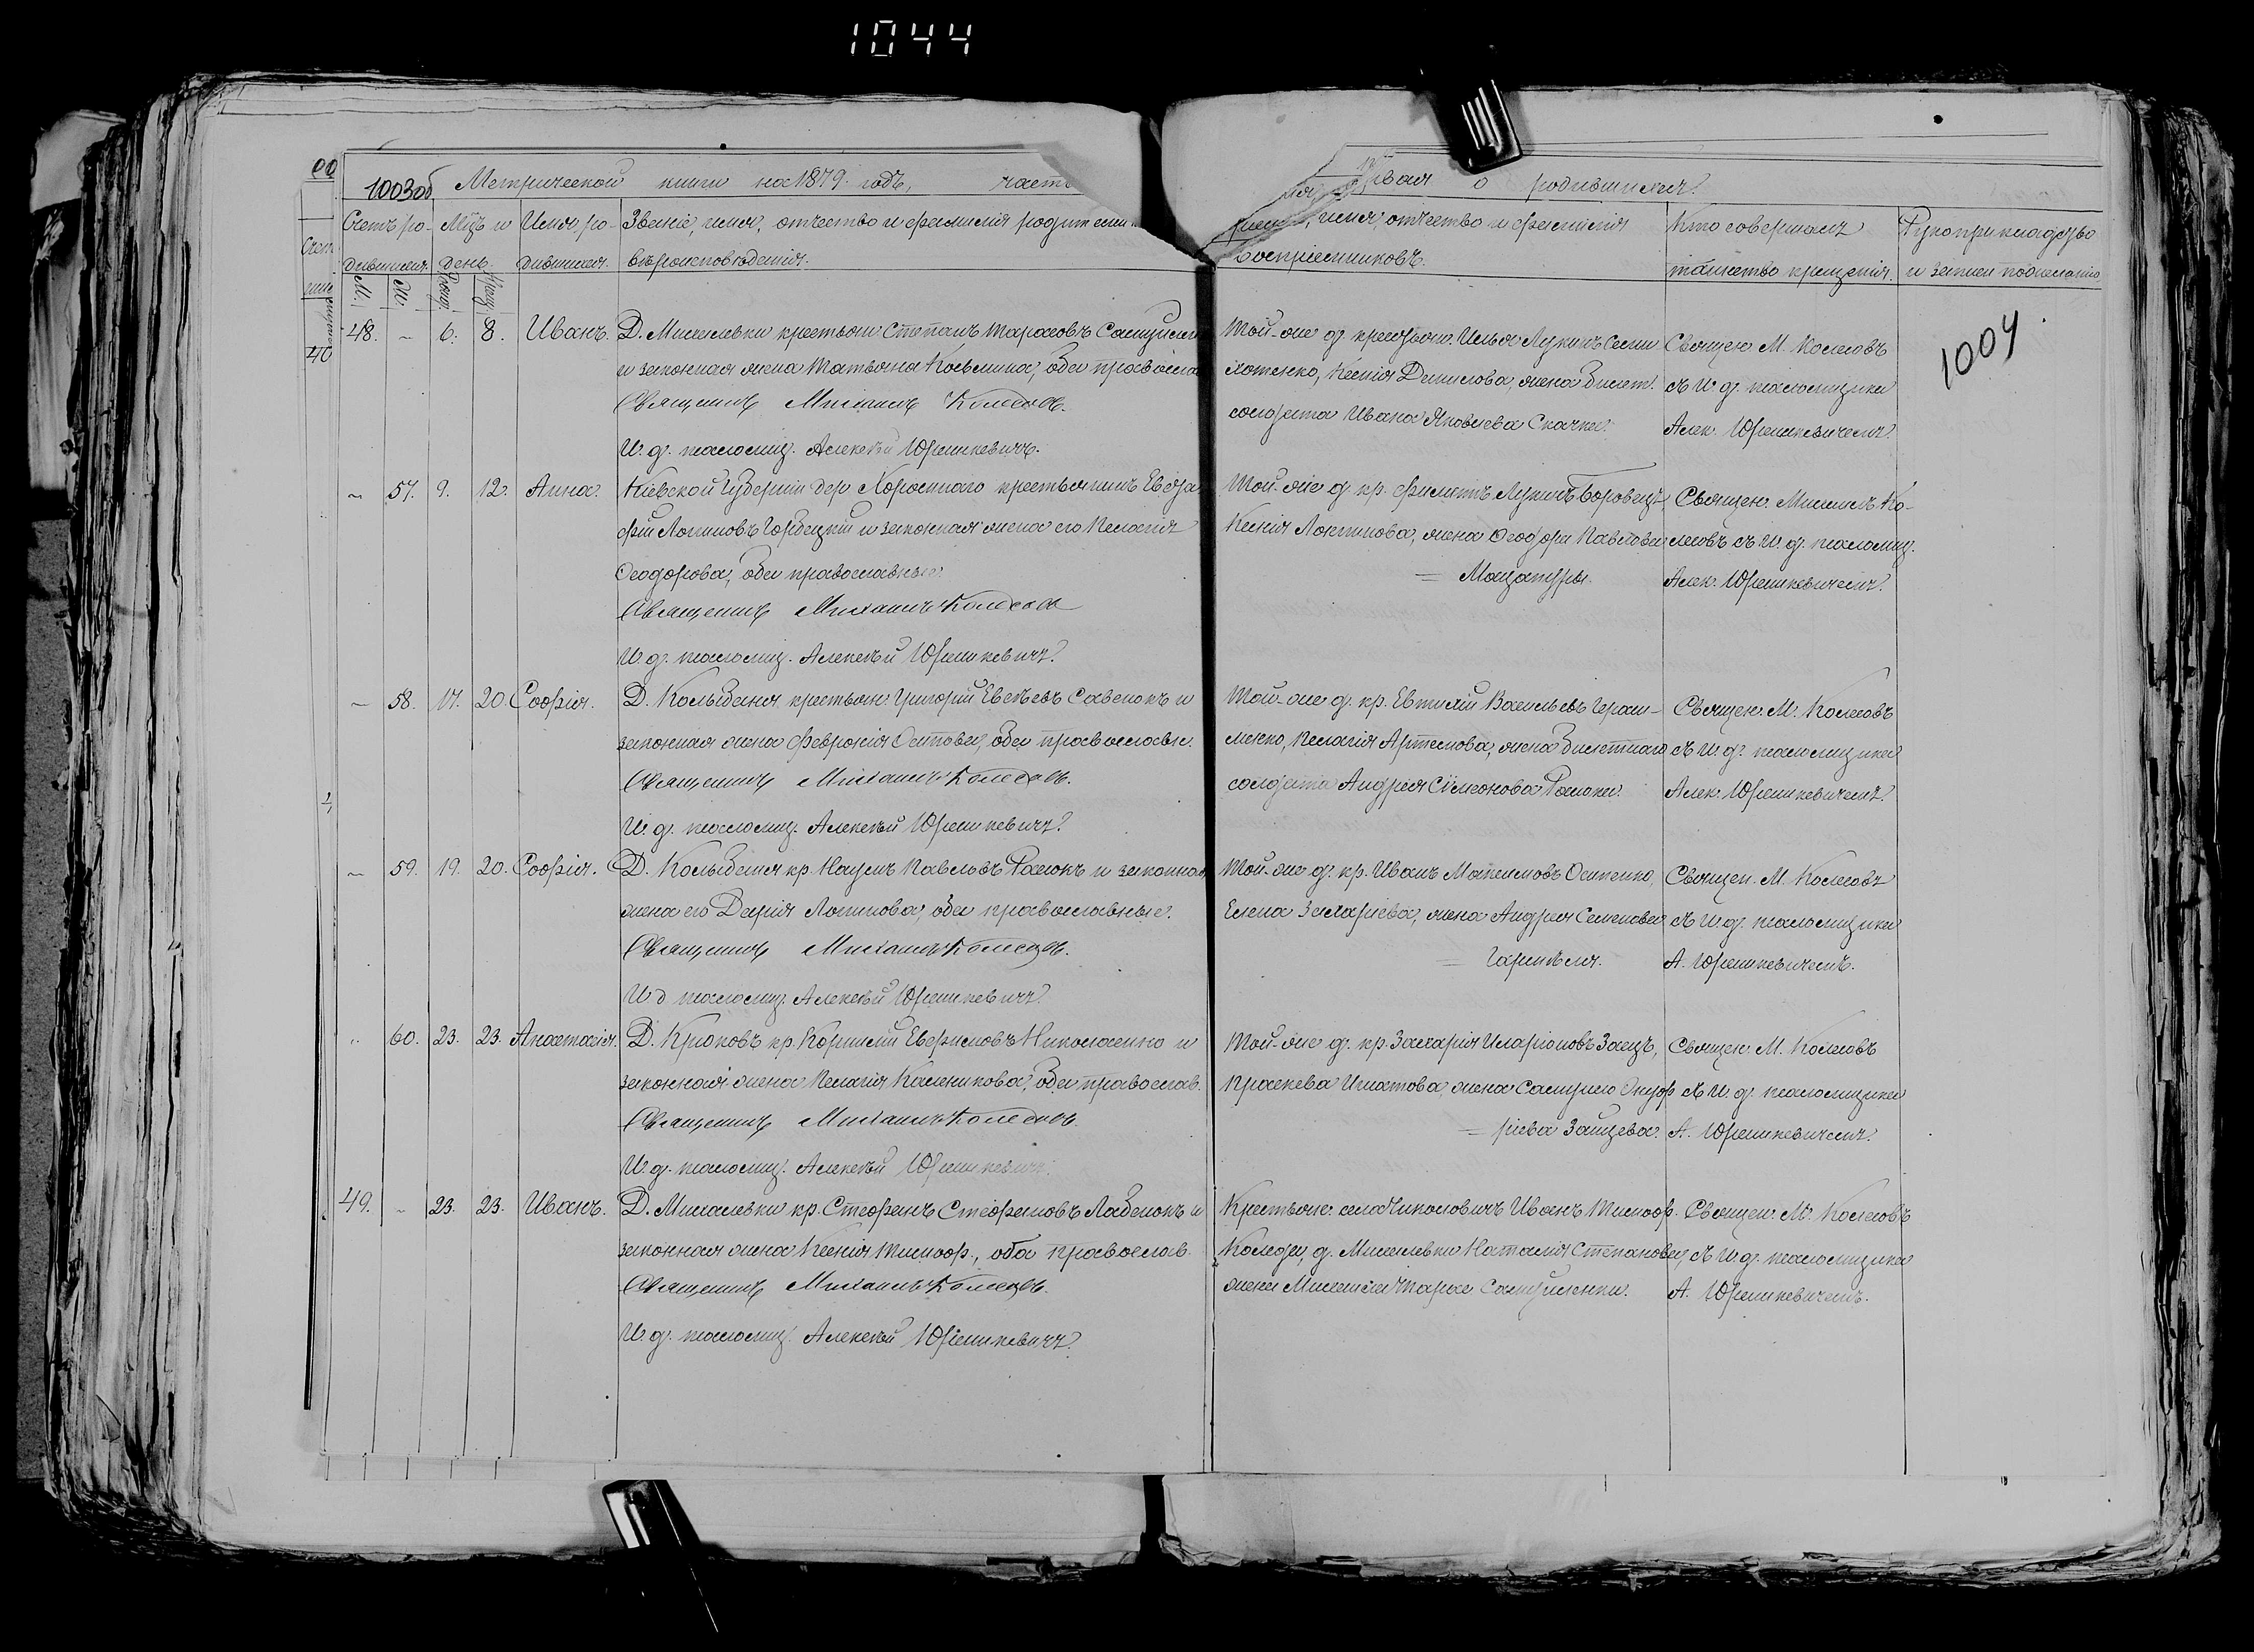 1044
1003об Метрической книги на 1879 годъ, часть первая о родившихся.
Счетъ ро- Мѣс. и Имя ро- Званіе, имя, отчество и фамилія родителей
дившихся. день. дившихся. вѣроисповѣданія.
имя, отчество и фамилія Кто совершалъ Рукоприкладство
воспріемниковъ. таинство крещенія. и записи по желанію
М. Ж. Рожд. Крещ.
1004
40
48. – 6. 8. Иванъ. Д. Михалевки крестьян. Степанъ Тарасовъ
и законная жена Татьяна Козьмина, оба
Священникъ Михаилъ Колесовъ.
И. д. псаломщ. Алексѣй Юрешкевичъ.
Той-же д. крестьян. Илья Лукинъ
Ксенія Данилова, жена билет.
солдата Ивана Яковлева Скачка.
Священ. М. Колесовъ
съ И. д. псаломщика
Алек. Юрешкевичемъ.
~ 57. 9. 12. Анна. Кіевской губерніи дер. крестьянинъ
Логиновъ и законная жена его Пелагія
Ѳеодорова, оба православные.
Священникъ Михаилъ Колесовъ
И. д. псаломщ. Алексѣй Юрешкевичъ.
Той-же д. кр. Филиппъ Лукинъ Боровецъ,
Ксенія Логинова, жена Ѳеодора Павлова
= Мацапуры.
Священ. Михаилъ Ко-
лесовъ съ И. д. псаломщ.
Алек. Юрешкевичемъ.
~ 58. 17. 20. Софія. Д. Колыбани крестьян. Григорій Евсѣевъ Савенокъ и
законная жена Февронія Осипова, оба православн.
Священникъ Михаилъ Колесовъ.
И. д. псаломщ. Алексѣй Юрешкевичъ.
Той-же д. кр. Евтихій Васильевъ Гераси-
менко, Пелагія Артемова, жена билетнаго
солдата Андрея Сѵмеонова Рашока.
Священ. М. Колесовъ
съ И. д. псаломщика
Алек. Юрешкевичемъ.
~ 59. 19. 20. Софія. Д. Колыбани кр. Наумъ Павловъ Рашокъ и законная
жена его Дарія Логинова, оба православные.
Священникъ Михаилъ Колесовъ.
И. д. псаломщ. Алексѣй Юрешкевичъ.
Той-же д. кр. Иванъ Максимовъ Осипенко,
Елена Захаріева, жена Андрея Семенова
=
Священ. М. Колесовъ
съ И. д. псаломщика
А. Юрешкевичемъ.
60. 23. 23. Анастасія. Д. Крюковъ кр. Корнилій Евфимовъ Николаенко и
законная жена Пелагія Каленикова, оба православ.
Священникъ Михаилъ Колесовъ.
И. д. псаломщ. Алексѣй Юрешкевичъ.
Той-же д. кр. Захарія Иларіоновъ Заецъ,
Праскева Игнатова, жена Самуила Онуф
= ріева Зайцева.
Священ. М. Колесовъ
съ И. д. псаломщика
А. Юрешкевичемъ.
49. – 23. 23. Иванъ. Д. Михалевки кр. Стефанъ Стефановъ Лабенокъ и
законная жена Ксенія Тимоф., оба православ.
Священникъ Михаилъ Колесовъ.
И. д. псаломщ. Алексѣй Юрешкевичъ.
Крестьян. села Чиколовичъ Иванъ Тимоф.
Коледа, д. Михалевки Наталія Степанова,
жена Михаила Тарас. Самуйленки.
Священ. М. Колесовъ
съ И. д. псаломщика
А. Юрешкевичемъ.